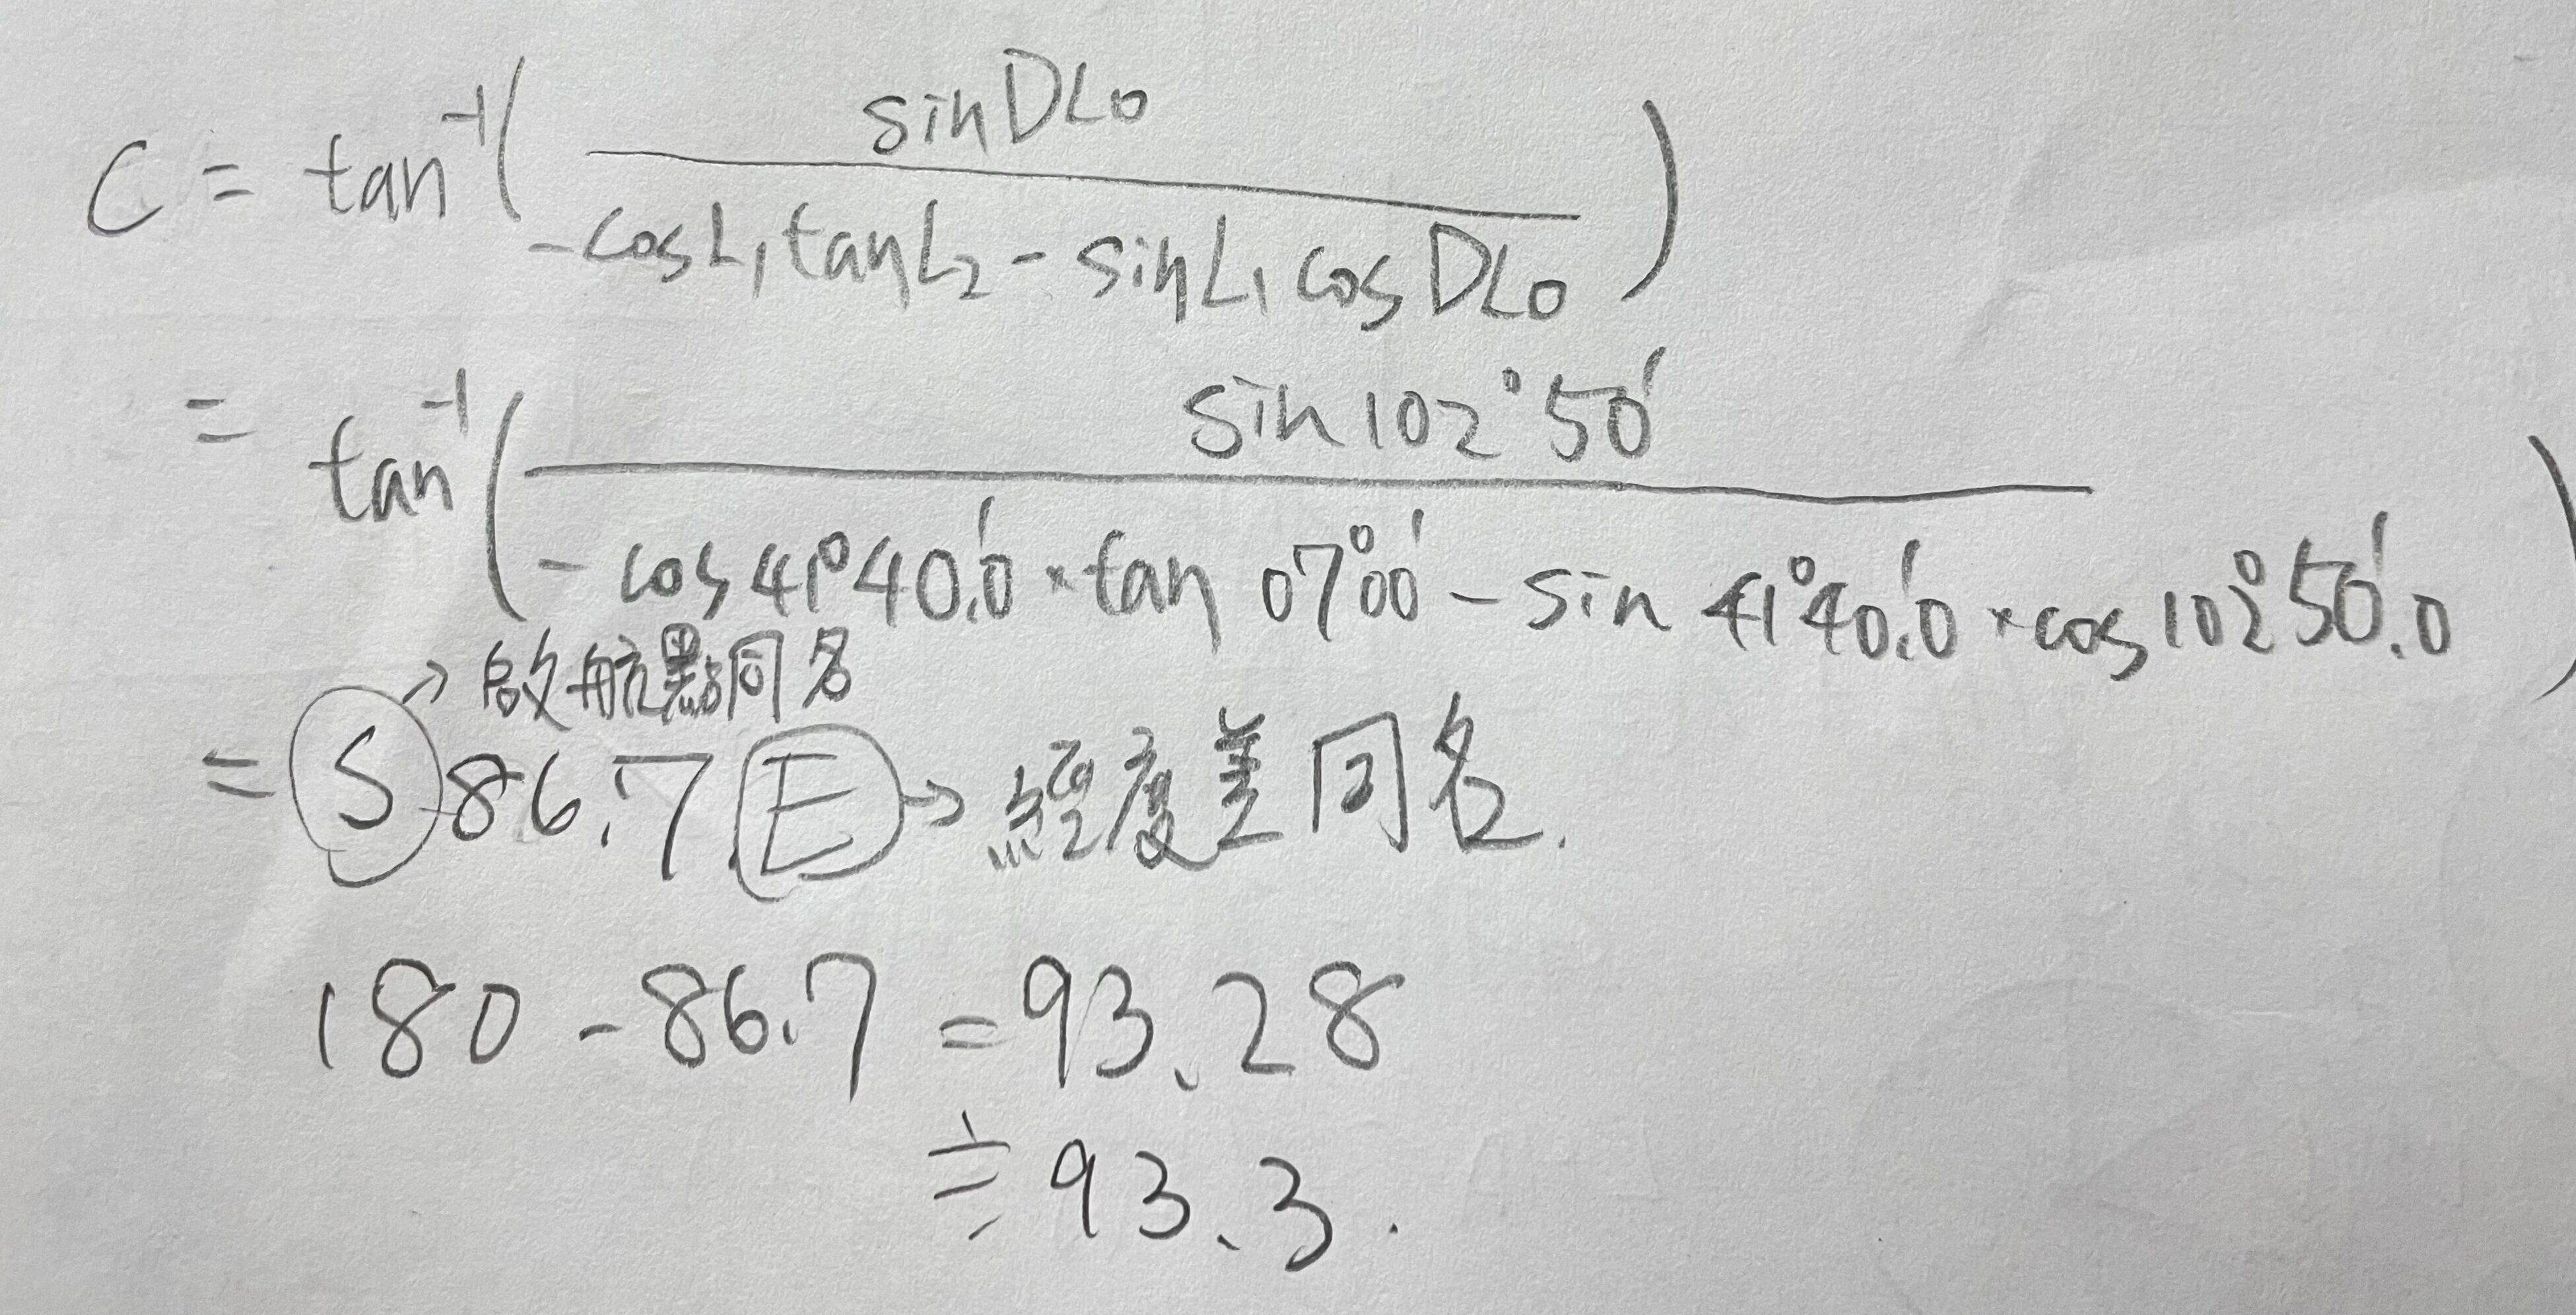 C = tan⁻¹( sinDLo / -cosL₁tanL₂ - sinL₁cosDLo )
= tan⁻¹( sin102°50' / -cos41°40.'0 × tan07°00' - sin41°40.'0 × cos102°50'.0 )
→ 啟航點同名
= S 86.7 E → 經度差同名.
180 - 86.7 = 93.28
≒ 93.3.